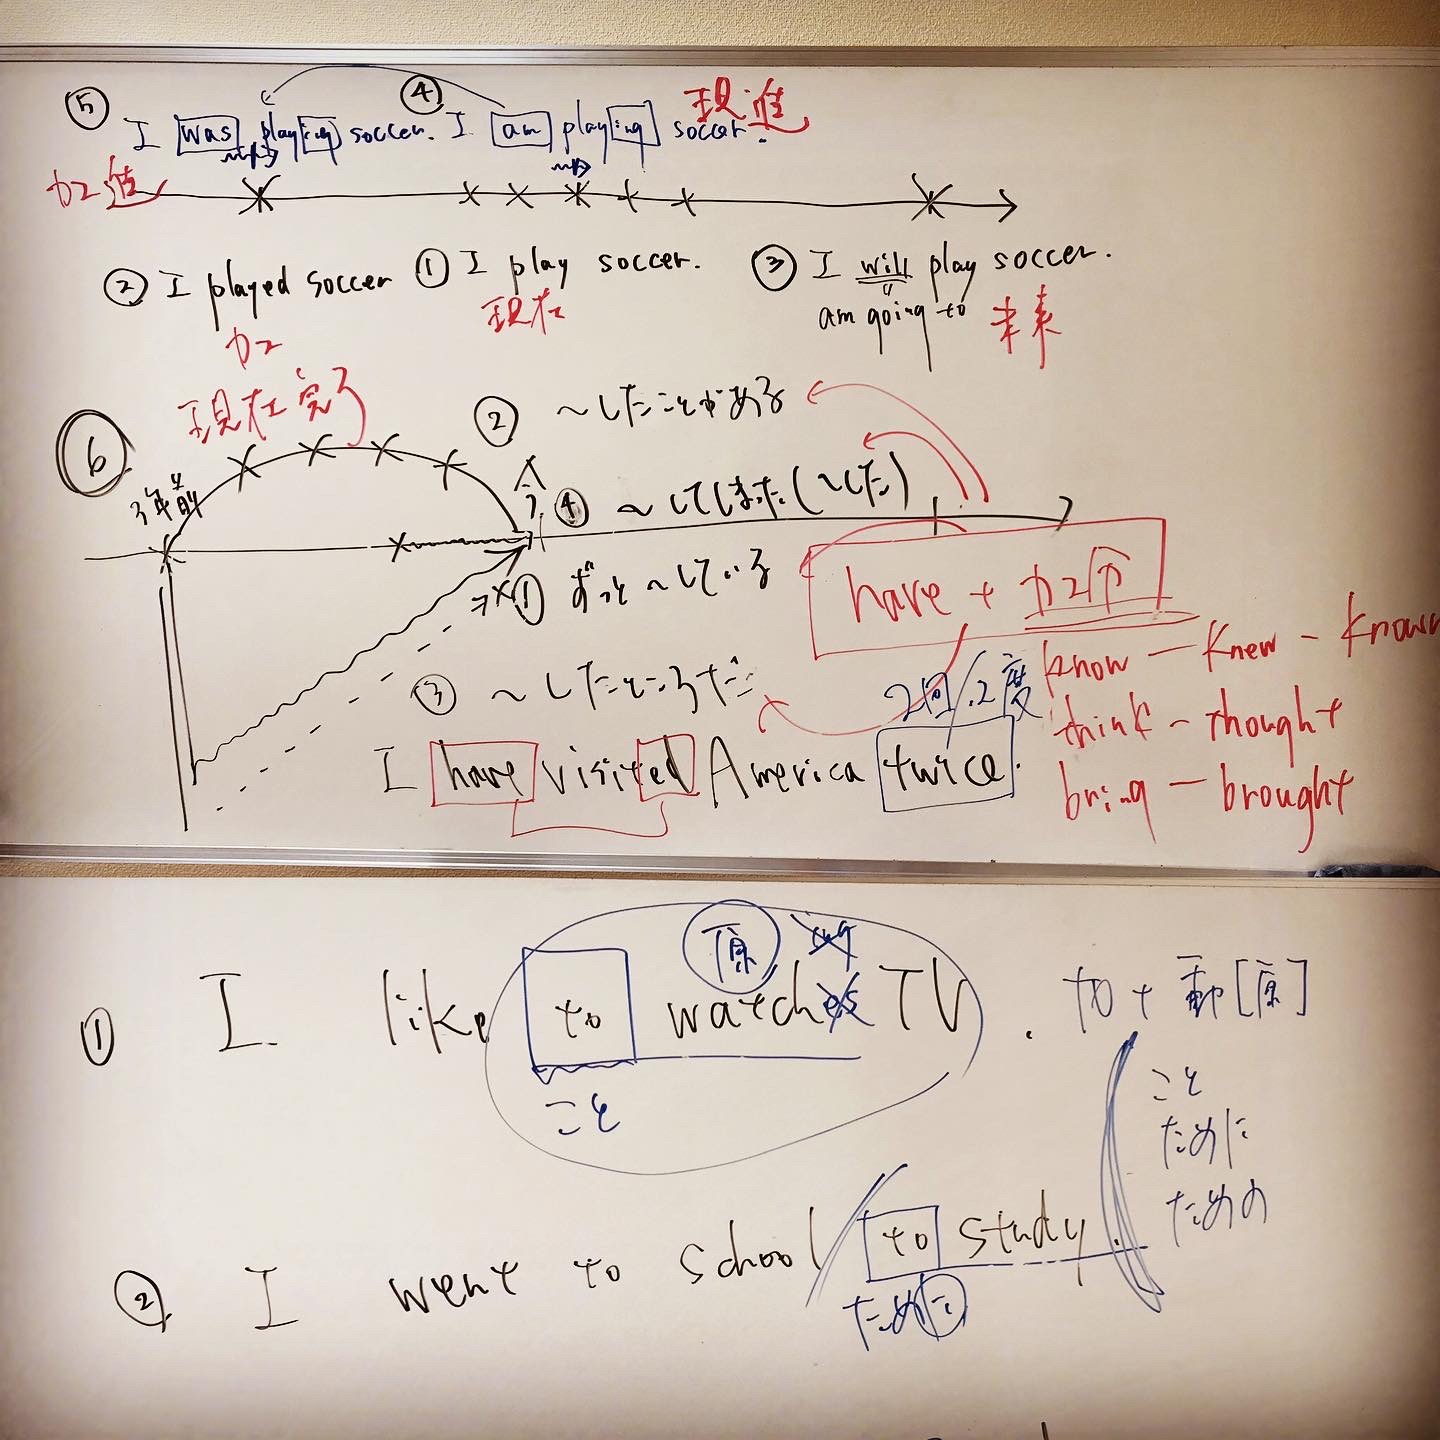 ⑤ I was playing soccer. ④ I am playing soccer. 現進
カコ進
② I played soccer ① I play soccer. ③ I will play soccer.
カコ 現在 am going to 未来
⑥ 現在完了 ② ~したことがある
3年前 今 ④ ~してしまった(~した)
① ずっと~している have + カコ分
③ ~したところだ 2回.2度 know - knew - known
I have visited America twice. think - thought
bring - brought
原 ing
① I like to watches TV. to + 動[原]
こと こと
ために
ための
② I went to school to study.
ために